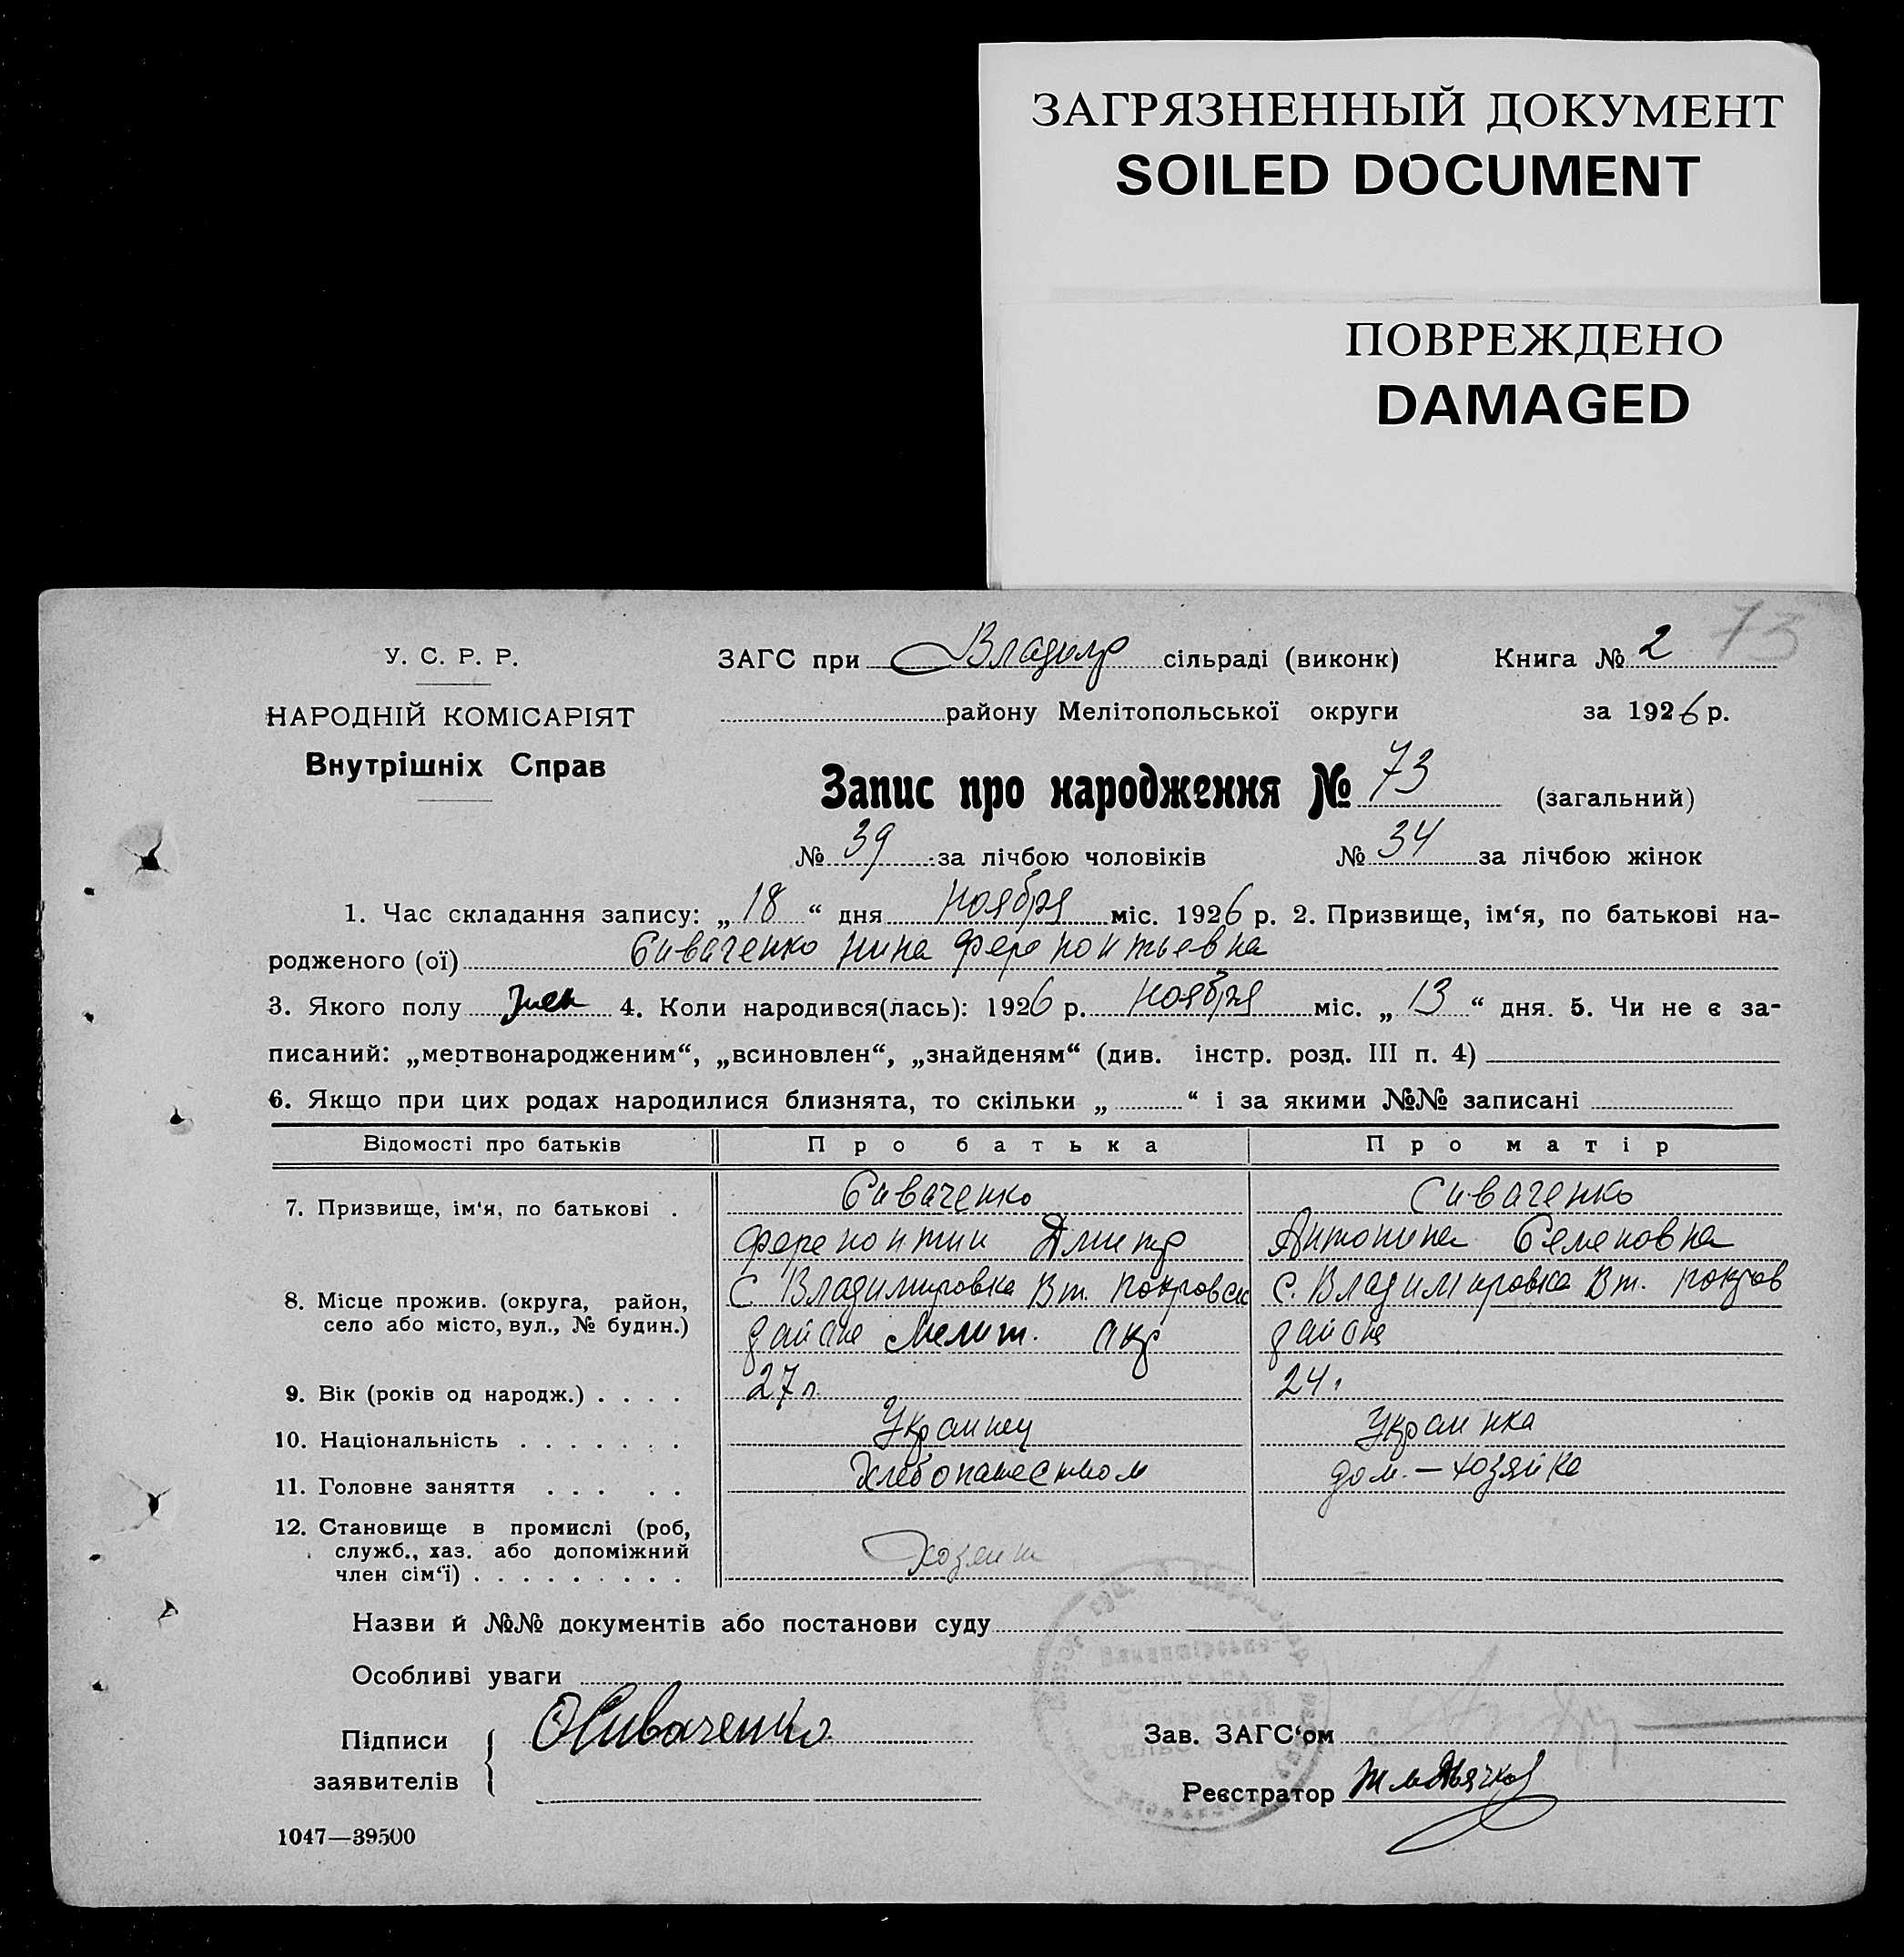 ЗАГРЯЗНЕННЫЙ ДОКУМЕНТ
SOILED DOCUMENT
ПОВРЕЖДЕНО
DAMAGED
73
У. С. Р. Р.
НАРОДНІЙ КОМІСАРІЯТ
Внутрішніх Справ
ЗАГС при Владимр сільраді (виконк) Книга № 2
району Мелітопольської округи за 1926 р.
Запис про народження № 73 (загальний)
№ 39 за лічбою чоловіків № 34 за лічбою жінок
1. Час складання запису: „18“ дня Ноября міс. 1926 р. 2. Призвище, ім‘я, по батькові на-
родженого (ої) Сиваченко Нина Ферепонтьевна
3. Якого полу жен 4. Коли народився(лась): 1926 р. Ноября міс. „13“ дня. 5. Чи не є за-
писаний: „мертвонародженим“, „всиновлен“, „знайденям“ (див. інстр. розд. III п. 4)
6. Якщо при цих родах народилися близнята, то скільки „ “ і за якими №№ записані
Відомості про батьків Про батька Про матір
7. Призвище, ім‘я, по батькові . Сиваченко Сиваченко
Ферепонтии Дмитр Антонина Семеновна
8. Місце прожив. (округа, район, С. Владимировка Вт. Покровск С. Владимировка Вт. Покров
село або місто, вул., № будин.) района Мелит. окр района
9. Вік (років од народж.) . . . . 27 л. 24.
10. Національність . . . . . . . Украинец Украинка
11. Головне заняття . . . . . Хлебопашеством дом. — хозяйка
12. Становище в промислі (роб,
служб., хаз. або допоміжний Хозяин
член сім‘ї) . . . . . . . . .
Назви й №№ документів або постанови суду
Особливі уваги
Підписи Сиваченко Зав. ЗАГС‘ом
заявителів Реєстратор
1047—39500